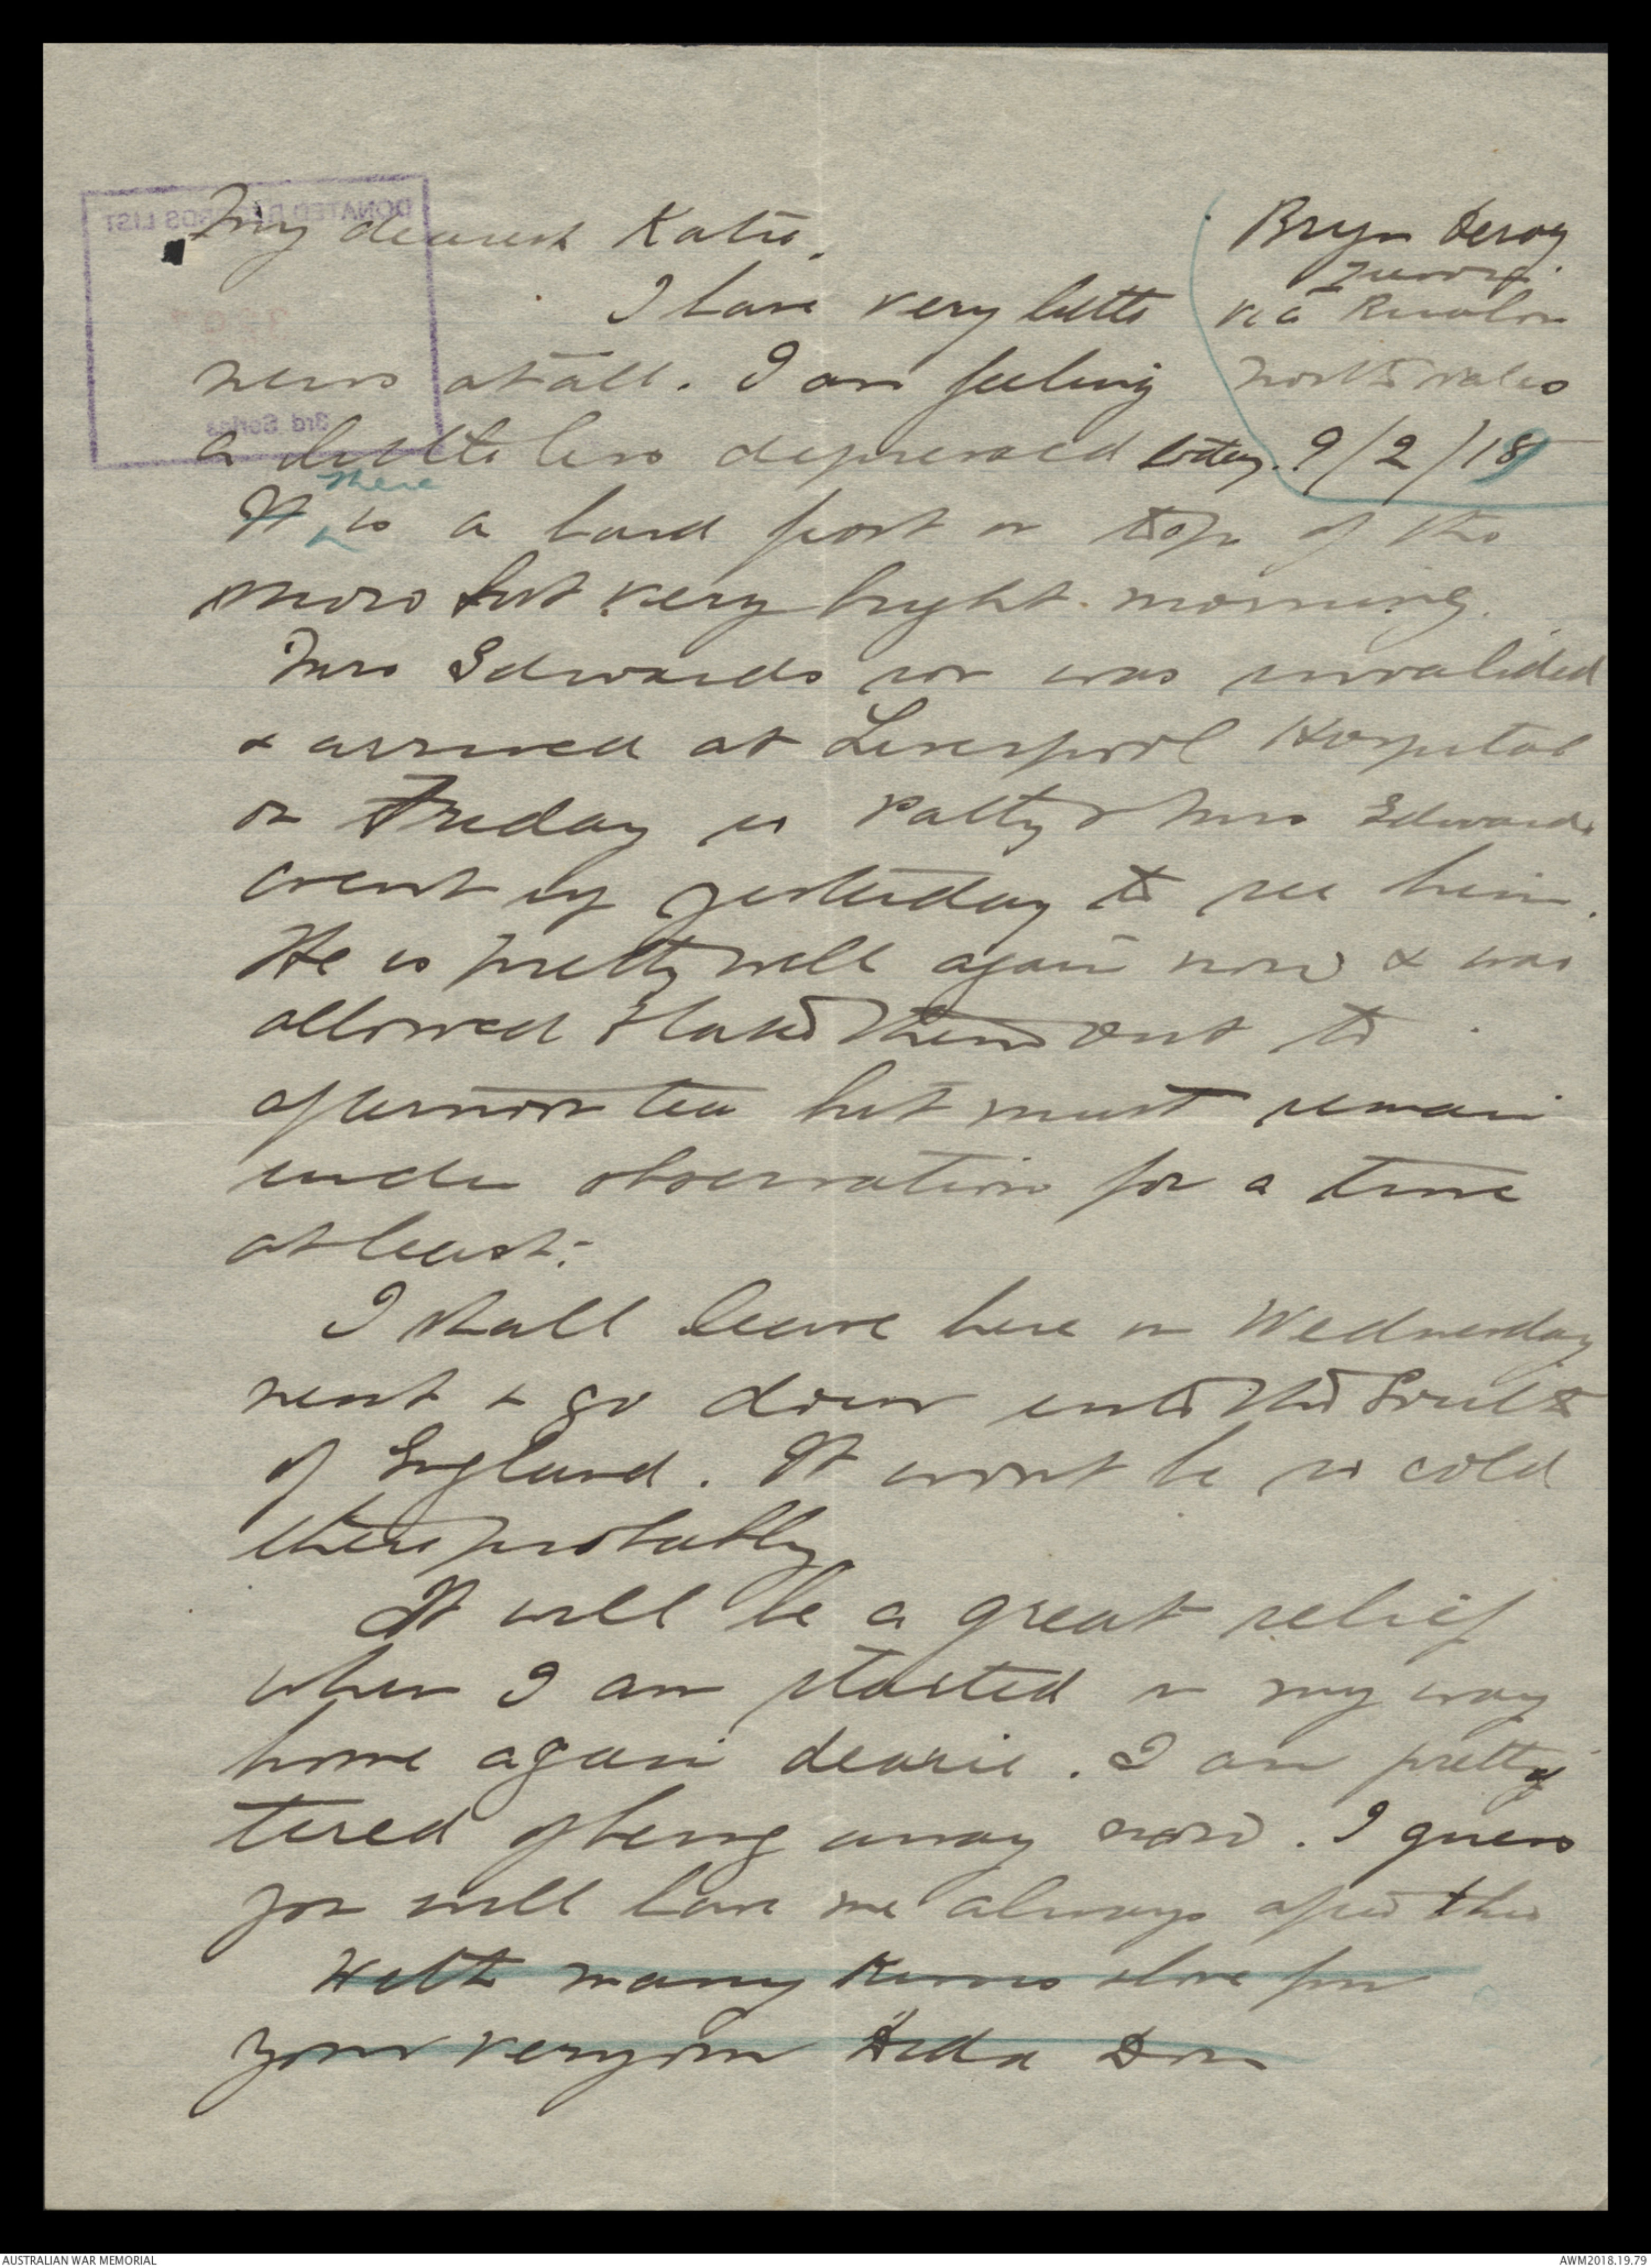 My dearest Katie,
Bryn Deroy
via Ruabon
North Wales
9/2/18
I have very little
news at all. I am feeling
a little less depressed today.
It there is a hard frost on top of the
snow but very bright morning.
Mrs Edwards son was invalided
& arrived at Liverpool Hospital
on Friday so Patty & Mrs Edwards
went up yesterday to see him.
He is pretty well again now & was
allowed to take them out to
afternoon tea but must remain
under observation for a time
at least.
I shall leave here on Wednesday
next & go down into the South
of England. It wont be so cold
there probably
It will be a great relief
when I am started on my way
home again dearie. I am pretty
tired of being away now. I guess
you will have me always after this
With many kisses & love from
your very own Dada Don
DONATED RECORDS LIST
3rd Series
AUSTRALIAN WAR MEMORIAL
AWM2018.19.79